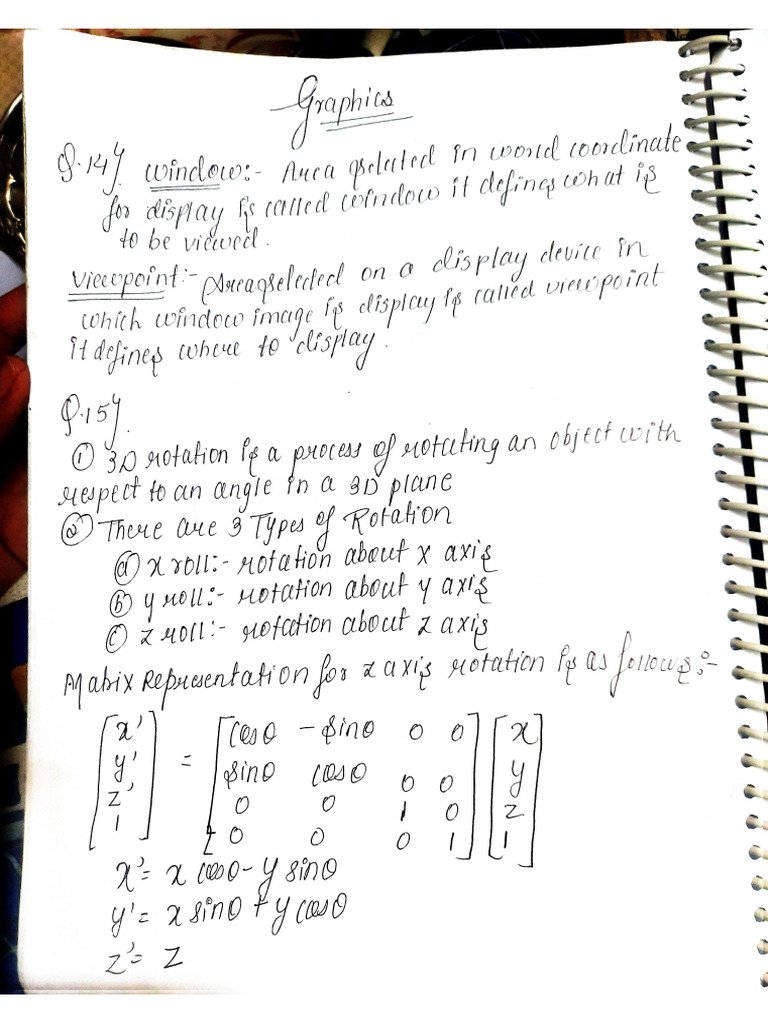 Graphics
Q.14) window:- Area selected in world coordinate
for display is called window it defines what is
to be viewed.
Viewpoint:- Area selected on a display device in
which window image is display is called viewpoint
it defines where to display.
Q.15)
① 3D rotation is a process of rotating an object with
respect to an angle in a 3D plane
② There are 3 Types of Rotation
ⓐ x roll:- rotation about x axis
ⓑ y roll:- rotation about y axis
ⓒ z roll:- rotation about z axis
Matrix Representation for z axis rotation is as follows:-
[x'] = [cosθ -sinθ 0 0] [x]
[y'] [sinθ cosθ 0 0] [y]
[z'] [0 0 1 0] [z]
[1] [0 0 0 1] [1]
x' = x cosθ - y sinθ
y' = x sinθ + y cosθ
z' = z